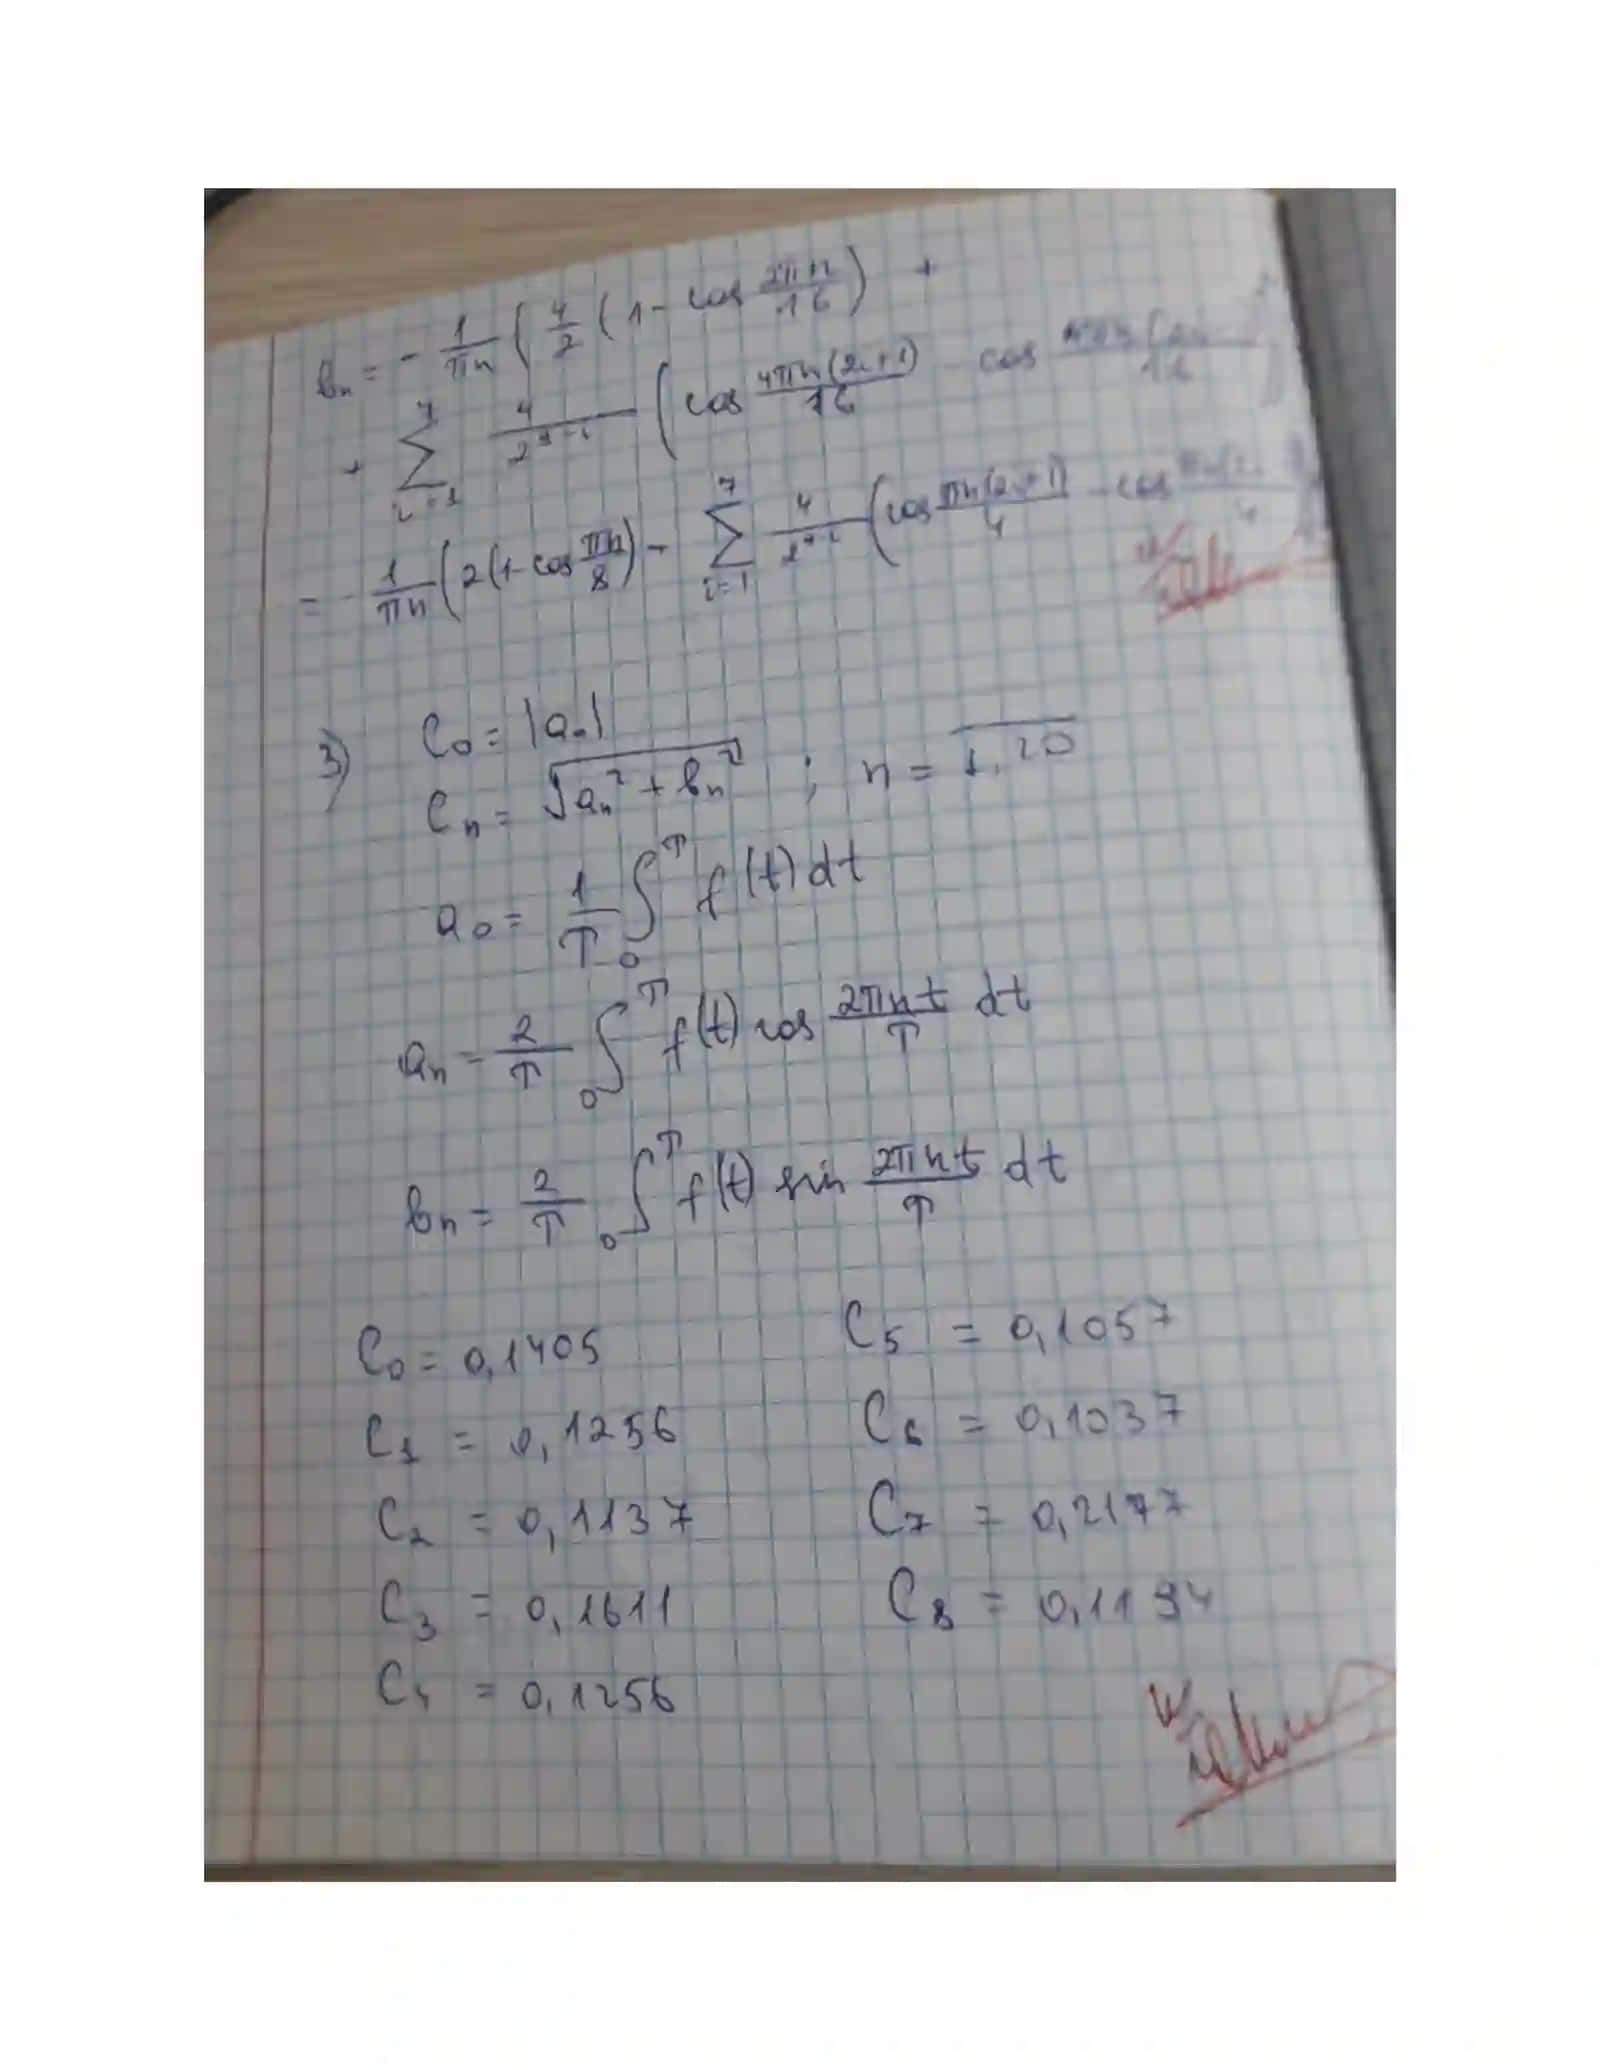 bₙ = - 1/(πn) ( 4/2 ( 1 - cos 2πn/16 ) +
+ Σ_{i=1}^{7} 4/2^{9-i} ( cos 4πn(2i+1)/16 - cos
= 1/(πn) ( 2(1-cos πn/8) - Σ_{i=1}^{7} 4/2^{9-i} ( cos πn(2i+1)/4 - cos
3) C₀ = |a₀|
Cₙ = √(aₙ² + bₙ²) ; n = 1,20
a₀ = 1/T ∫₀ᵀ f(t) dt
aₙ = 2/T ∫₀ᵀ f(t) cos 2πnt/T dt
bₙ = 2/T ∫₀ᵀ f(t) sin 2πnt/T dt
C₀ = 0,1405
C₁ = 0,1256
C₂ = 0,1137
C₃ = 0,1611
C₄ = 0,1256
C₅ = 0,1057
C₆ = 0,1037
C₇ = 0,2177
C₈ = 0,1194